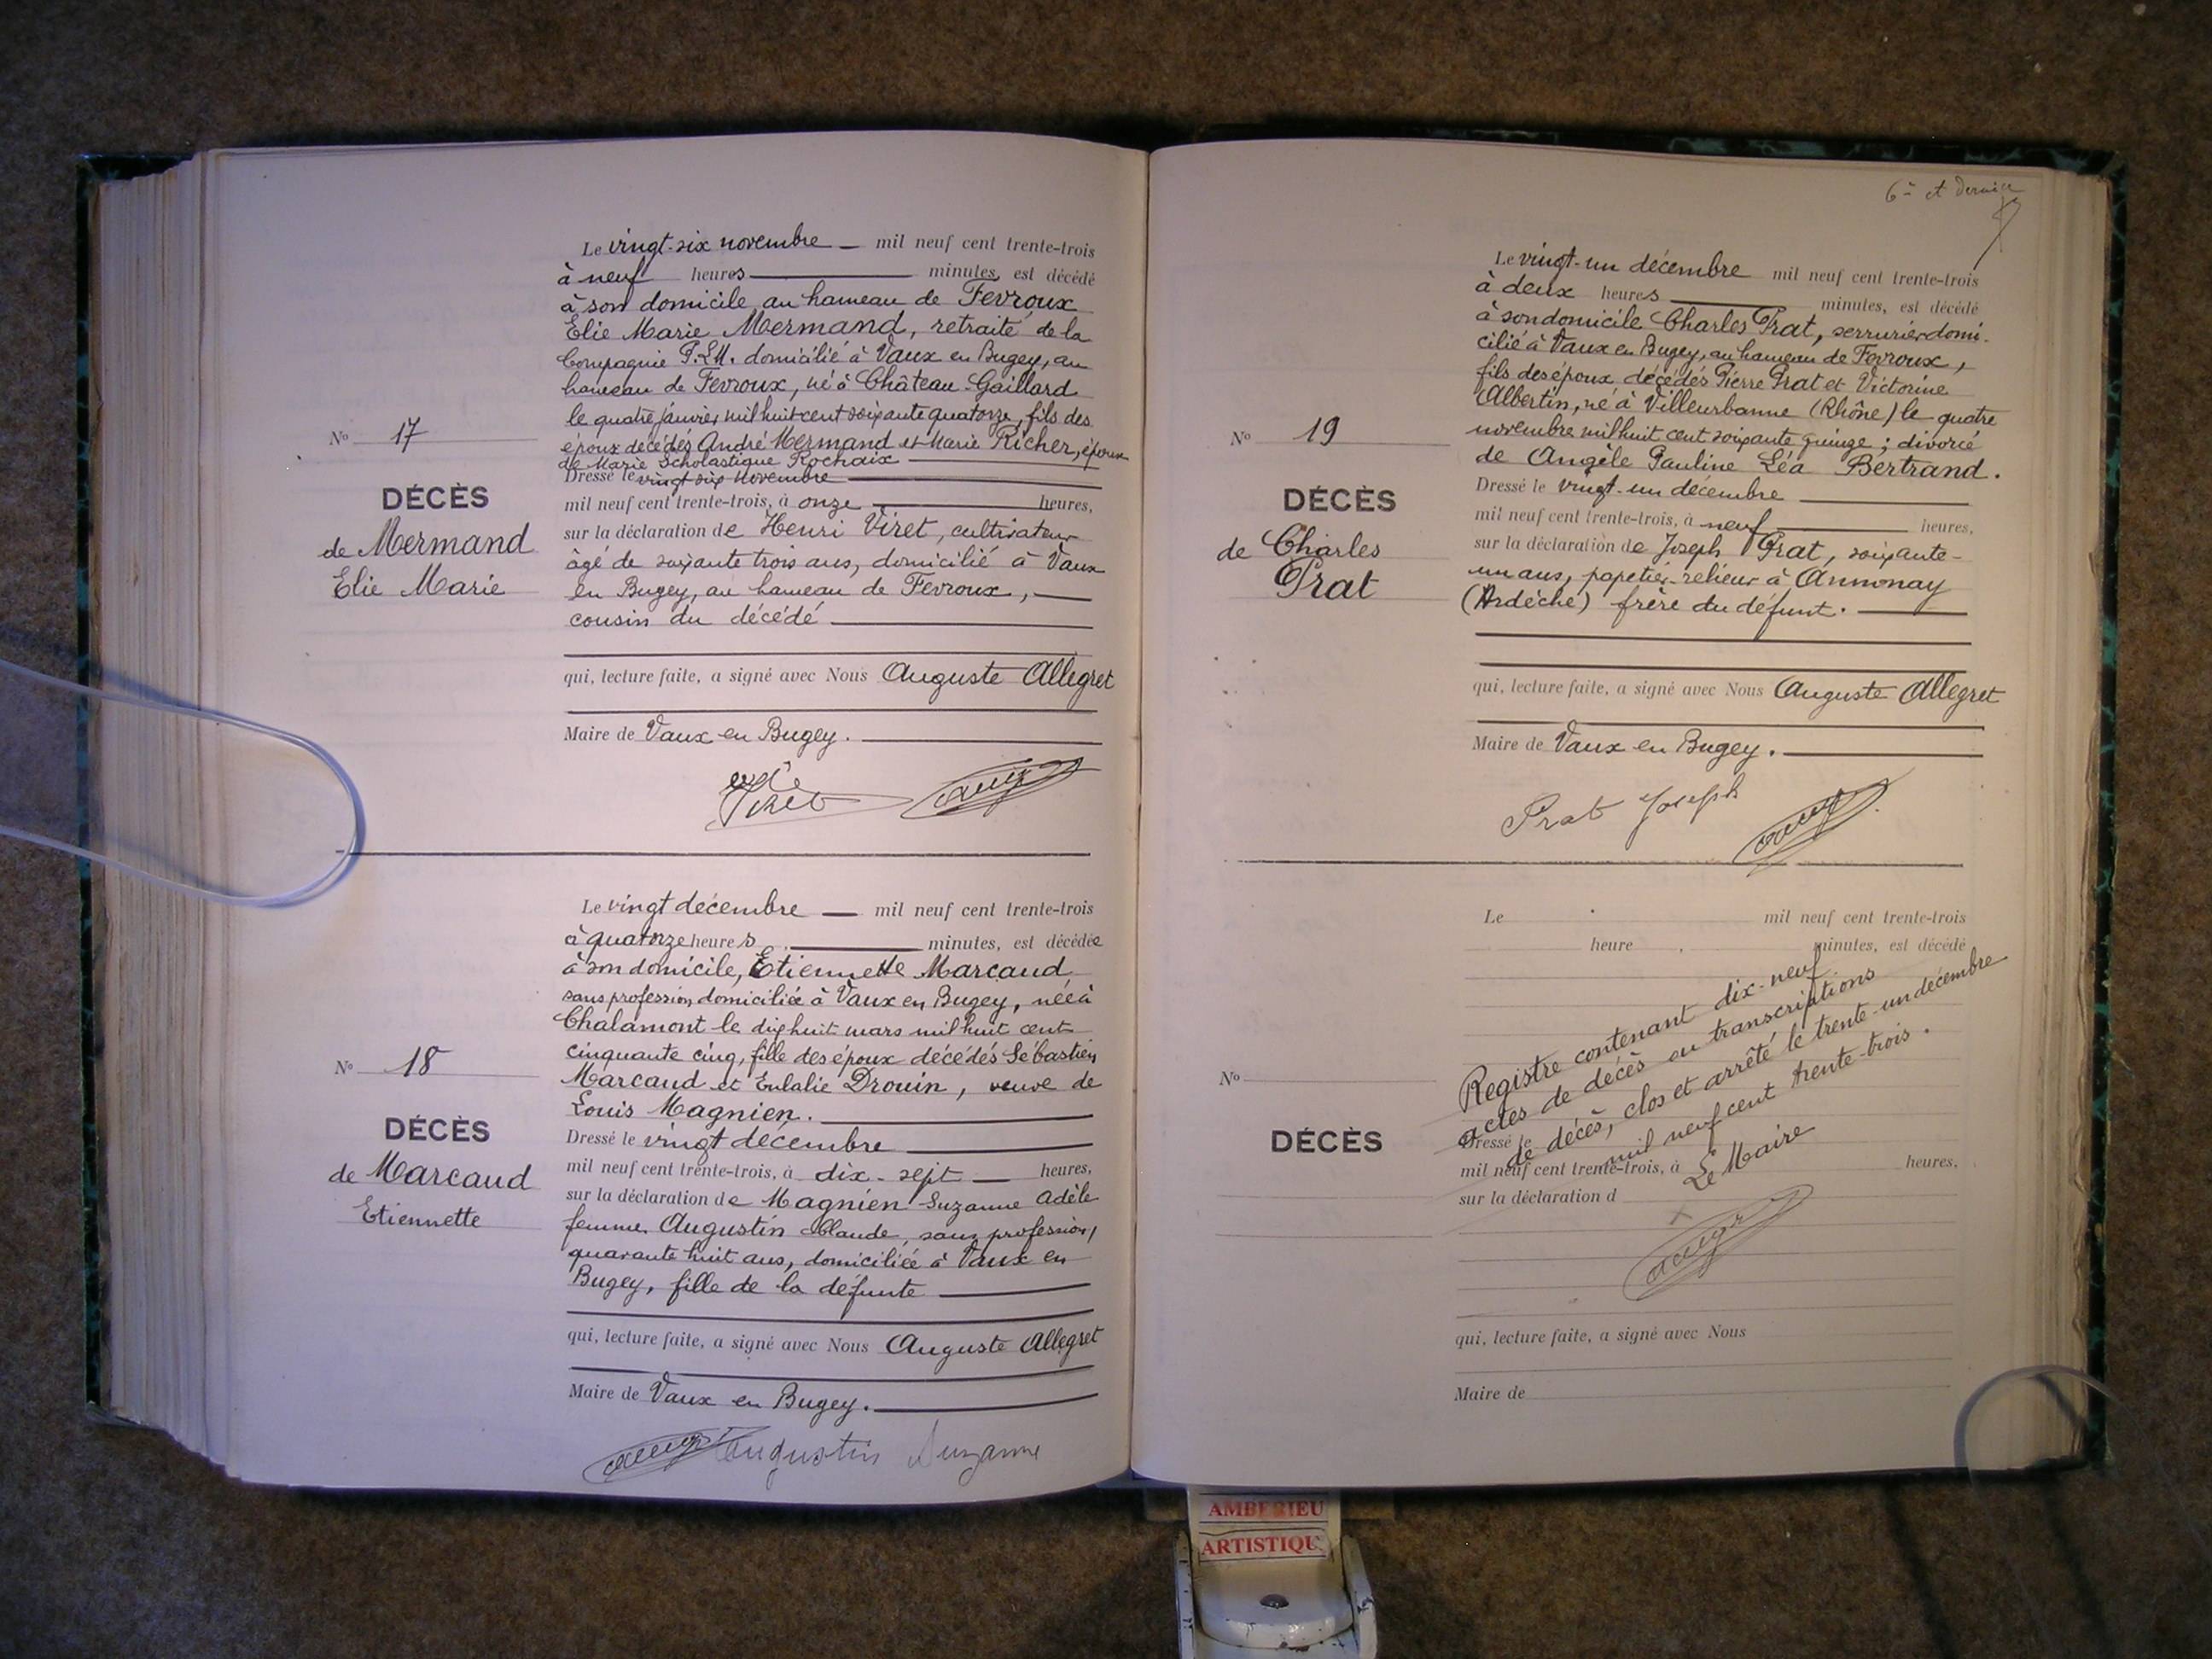 Le vingt-six novembre — mil neuf cent trente-trois
à neuf heures minutes, est décédé
à son domicile au hameau de Fevroux
Elie Marie Mermand, retraité de la
Compagnie P.L.M. domicilié à Vaux en Bugey, au
hameau de Fevroux, né à Château-Gaillard
le quatre janvier mil huit cent soixante quatorze, fils des
époux décédés André Mermand et Marie Richer, époux
de Marie Scholastique Rochaix
Dressé le vingt six novembre
mil neuf cent trente-trois, à onze heures,
sur la déclaration de Henri Viret, cultivateur
âgé de soixante trois ans, domicilié à Vaux
en Bugey, au hameau de Fevroux,
cousin du décédé
qui, lecture faite, a signé avec Nous Auguste Allegret
Maire de Vaux en Bugey.
Viret
No 17
DÉCÈS
de Mermand
Elie Marie
Le vingt décembre — mil neuf cent trente-trois
à quatorze heures, minutes, est décédée
à son domicile, Etiennette Marcaud
sans profession domiciliée à Vaux en Bugey, née à
Chalamont le dix huit mars mil huit cent
cinquante cinq, fille des époux décédés Sébastien
Marcaud et Eulalie Drouin, veuve de
Louis Magnien.
Dressé le vingt décembre
mil neuf cent trente-trois, à dix-sept — heures,
sur la déclaration de Magnien Suzanne Adèle
femme Augustin Claude, sans profession,
quarante huit ans, domiciliée à Vaux en
Bugey, fille de la défunte
qui, lecture faite, a signé avec Nous Auguste Allegret
Maire de Vaux en Bugey.
Augustin Suzanne
No 18
DÉCÈS
de Marcaud
Etiennette
6e et dernier
Le vingt-un décembre mil neuf cent trente-trois
à deux heures minutes, est décédé
à son domicile Charles Prat, serrurier domi-
cilié à Vaux en Bugey, au hameau de Fevroux,
fils des époux décédés Pierre Prat et Victorine
Albertin, né à Villeurbanne (Rhône) le quatre
novembre mil huit cent soixante quinze ; divorcé
de Angèle Pauline Léa Bertrand.
Dressé le vingt-un décembre
mil neuf cent trente-trois, à neuf heures,
sur la déclaration de Joseph Prat, soixante-
un ans, papetier-relieur à Annonay
(Ardèche) frère du défunt.
qui, lecture faite, a signé avec Nous Auguste Allegret
Maire de Vaux en Bugey.
Prat Joseph
No 19
DÉCÈS
de Charles
Prat
Le mil neuf cent trente-trois
heure , minutes, est décédé
Registre contenant dix-neuf
actes de décès ou transcriptions
de décès, clos et arrêté le trente-un décembre
mil neuf cent trente-trois.
Le Maire
No
DÉCÈS
Dressé le
mil neuf cent trente-trois, à heures,
sur la déclaration d
qui, lecture faite, a signé avec Nous
Maire de
AMBERIEU
ARTISTIQU